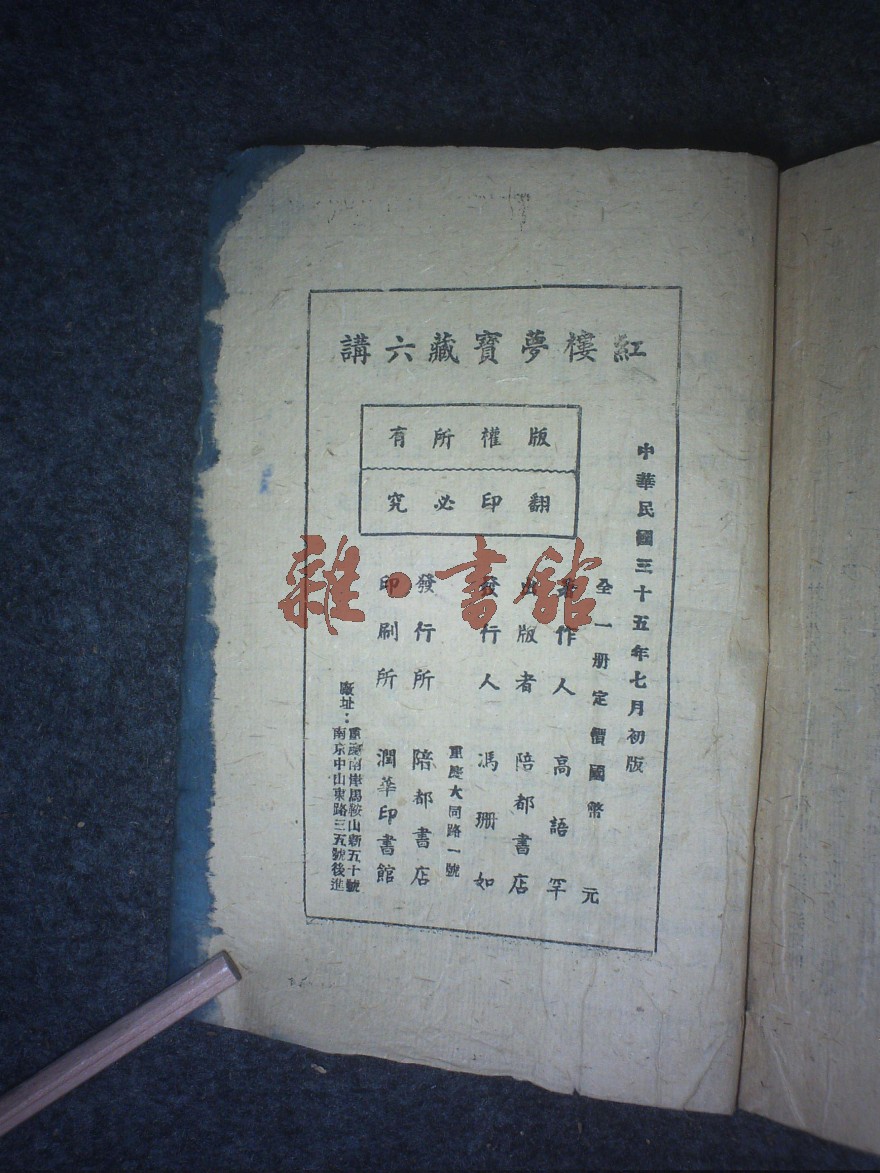 紅樓夢寶藏六講
版權所有
翻印必究
中華民國三十五年七月初版
全一册定價國幣 元
著作人 高語罕
出版者 陪都書店
發行人 馮珊如
重慶大同路一號
發行所 陪都書店
印刷所 潤華印書館
廠址：重慶南岸馬鞍山新五十號
南京中山東路三五號後進
雜·書館